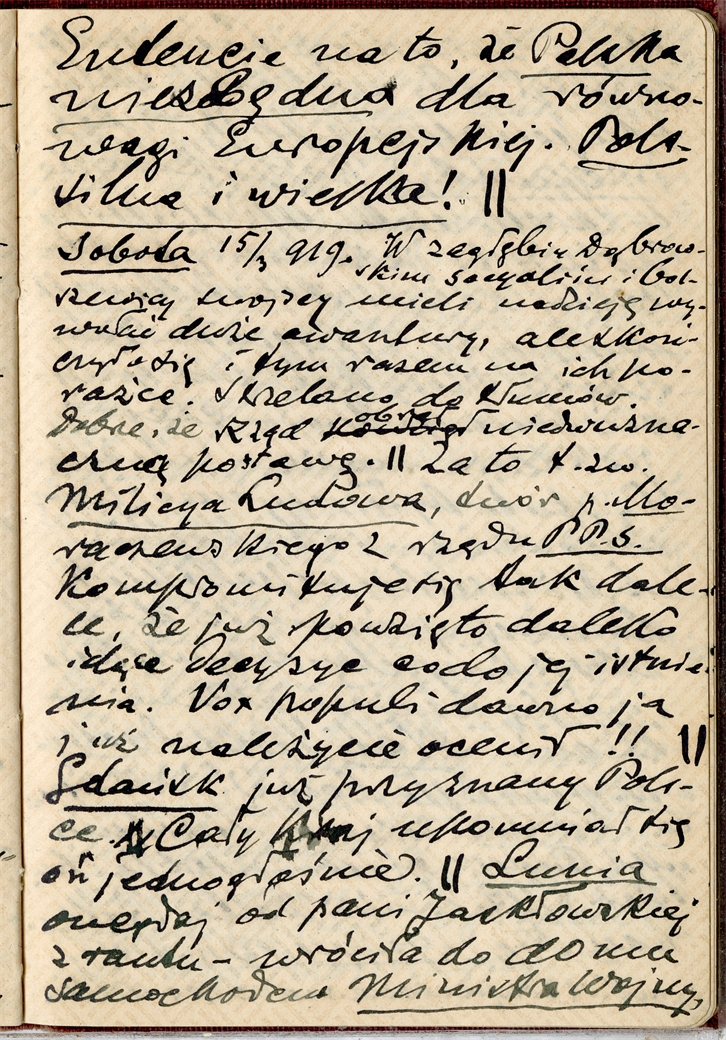 Entencie na to, że Polska
niezbędna dla równo-
wagi Europejskiej. Pols-
silna i wielka! ||
Sobota 15/3 919. W zagłębiu Dąbrow-
skim socyaliści i bol-
szewicy znowu mieli nadzieję wy-
wołać duże awantury, ale skoń-
czyło się i tym razem na ich po-
rażce. Strzelano do tłumów.
Dobrze, że Rząd obrał niedwuzna-
czną postawę. || Za to t. zw.
Milicya Ludowa, twór p. Mo-
raczewskiego z rządu P.P.S.
Kompromituje się tak dale-
ce, że już powzięto daleko
idące decyzye co do jej istnie-
nia. Vox populi dawno ja
już należycie ocenił !! ||
Gdańsk już przyznany Pols-
ce. || Cały Kraj upomniał się
oń jednogłośnie. || Lunia
onegdaj od pani Jackowskiej
z rautu - wróciła do domu
samochodem Ministra Wojny,